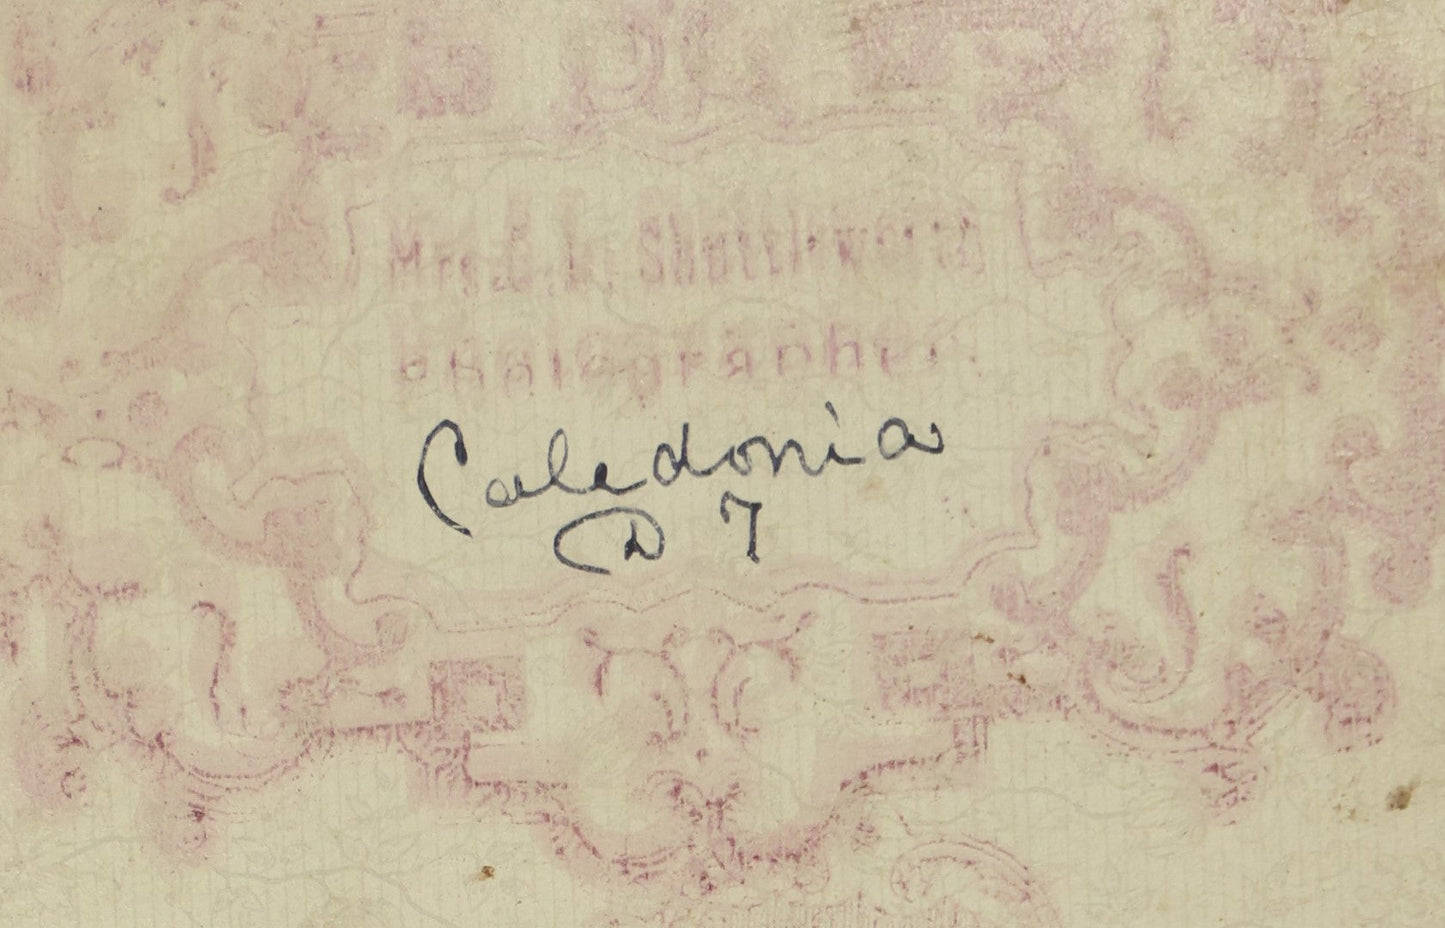 Mrs. C. L. Shuttleworth
Photographer.
Caledonia
D 7